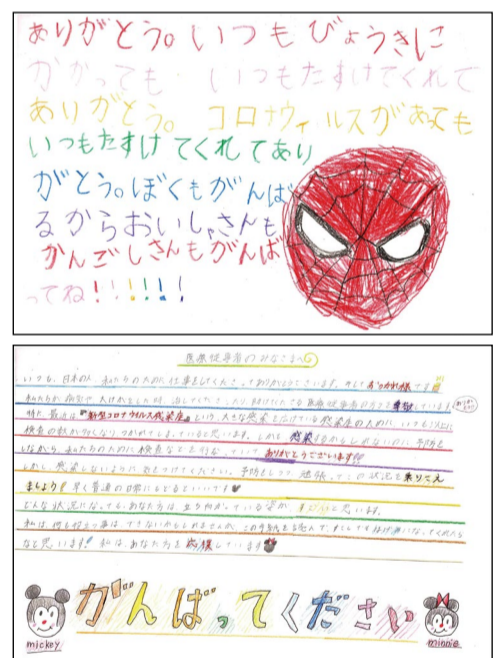 ありがとう。いつもびょうきに
かかっても いつもたすけてくれて
ありがとう。 コロナウィルスがあっても
いつもたすけてくれてあり
がとう。ぼくもがんば
るからおいしゃさんも
かんごしさんもがんば
ってね!!!!!!
医療従事者のみなさまへ
いつも、日本の人、私たちのために仕事をしてくださってありがとうございます。そして おつかれ様です
私たちが病気や大けがをした時、治してくださったり、助けてくださる医療従事者の方々を尊敬しています
特に最近は『新型コロナウイルス感染症』という、大きな感染症のために、いつも以上に
検査の数が多くなりつかれてしまっていると思います。しかも 感染するかもしれないのに 予防を
しながら、私たちのために検査などを行なっていて ありがとうございます
しかし、感染しないように 気をつけてください。予防をしっかりして 頑張って この状況を乗りこえ
ましょう!早く普通の日常にもどるといいです
どんな状況になっても、あなた方は 立ち向かっている姿が すごいと思います。
私は 何も役立つ事は できないかもしれませんが、この手紙を読んで、すこしでも
なと思います! 私は、あなた方を応援しています
がんばってください
mickey
minnie